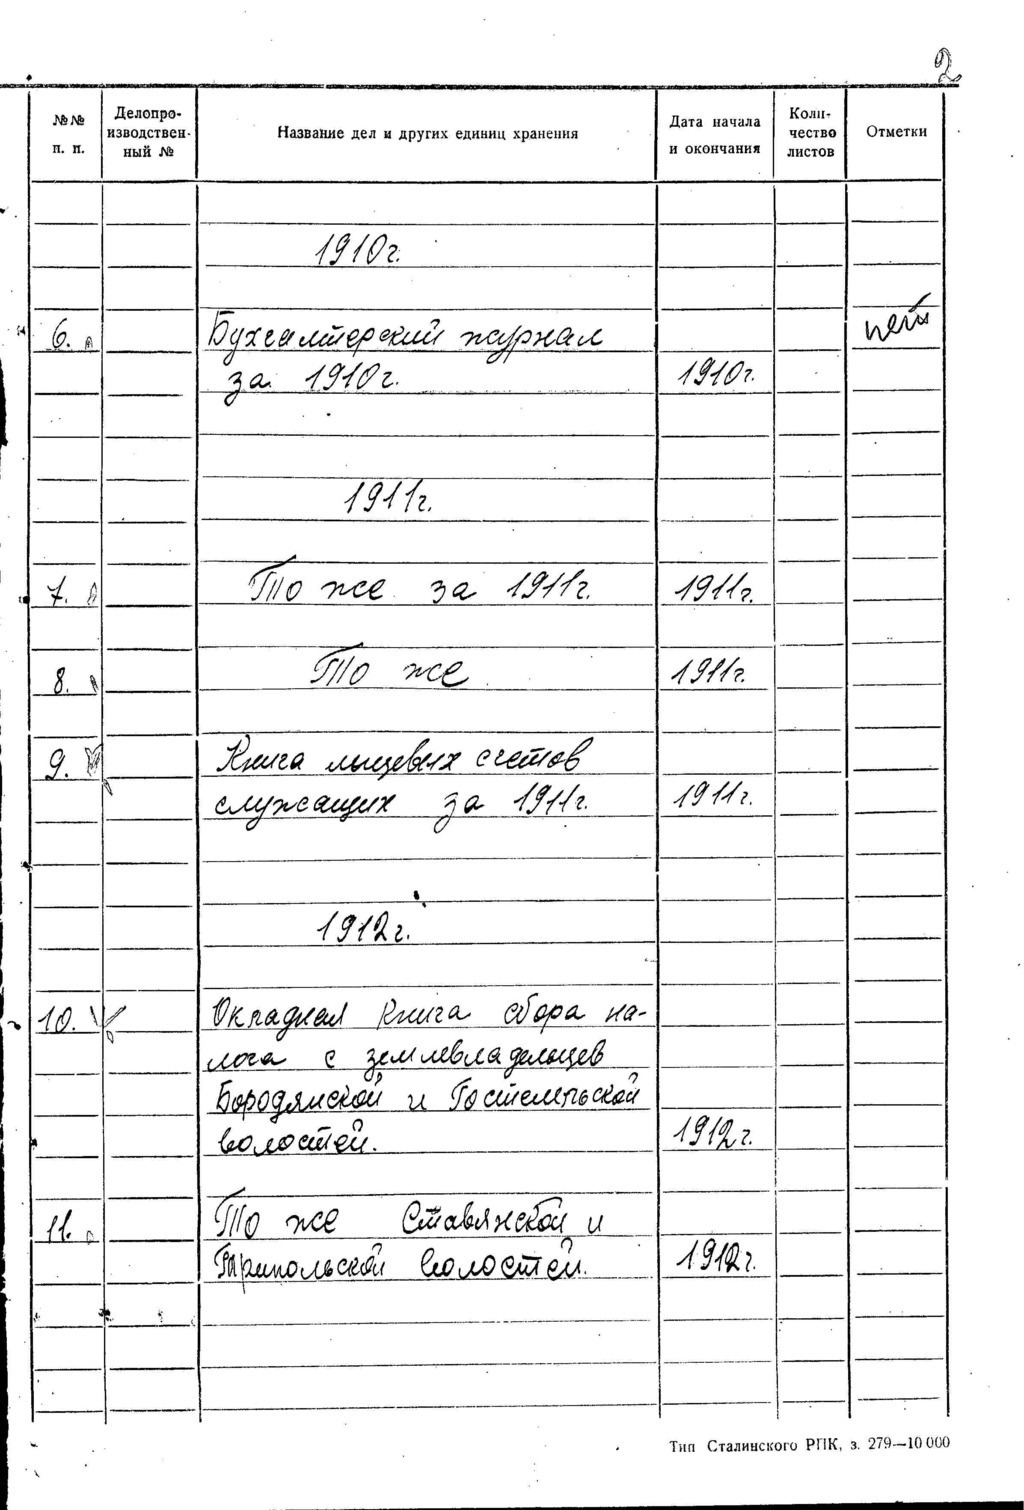 2
№№ п. п. Делопроизводствен- ный № Название дел и других единиц хранения Дата начала и окончания Количество листов Отметки
1910г.
6. Бухгалтерский журнал нет
за 1910г. 1910г.
1911г.
7. То же за 1911г. 1911г.
8. То же 1911г.
9. Книга лицевых счетов
служащих за 1911г. 1911г.
1912г.
10. Окладная книга сбора на-
лога с землевладельцев
Бородянской и Гостомельской
волостей. 1912г.
11. То же Ставянской и
Трипольской волостей. 1912г.
Тип Сталинского РПК, з. 279—10 000